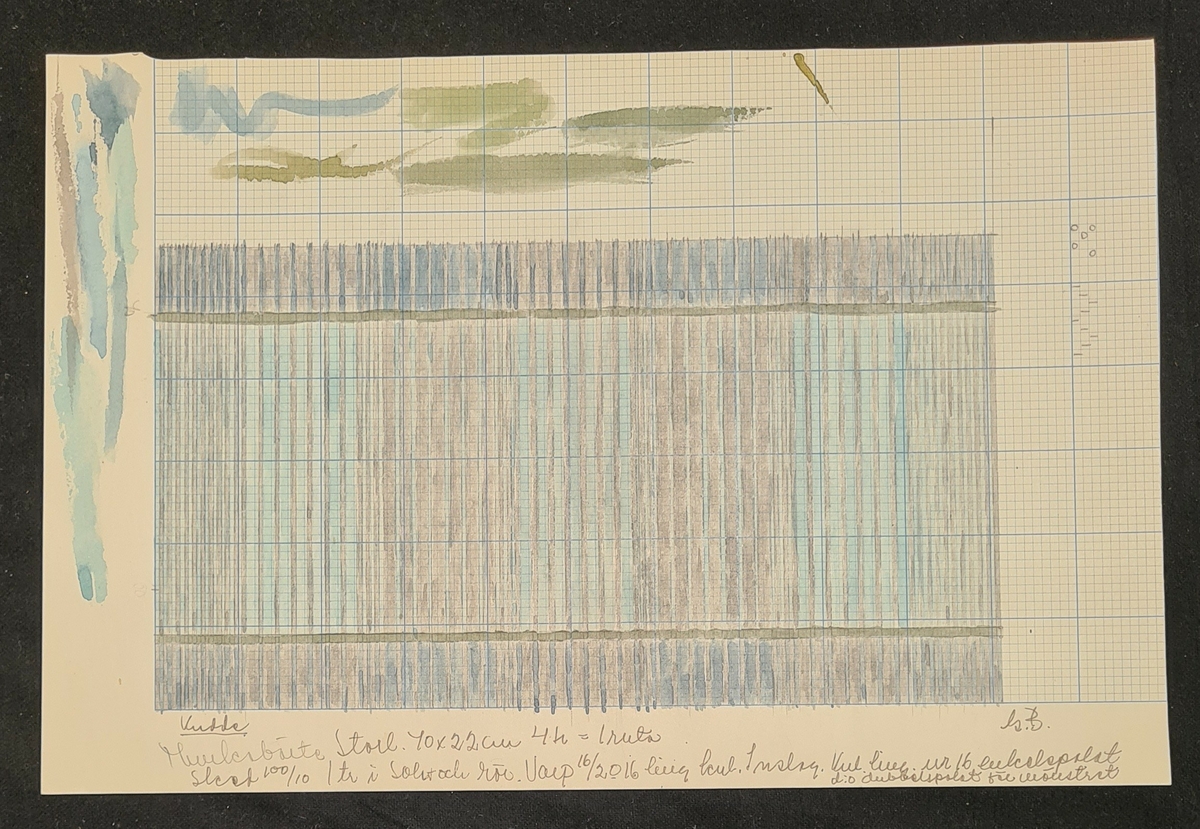 Kudde
G.B.
Munkabälte Storl. 70x22cm 4h = 1 ruta
Sked 100/10 1 tr i Solv och rör. Varp 16/2 o 16 ling kul. Inslag. Kul. ling. nr 16 enkelspolat
d:o dubbelspolat för mönstret